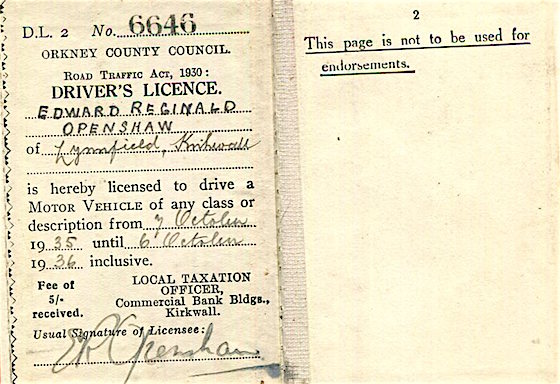 D.L. 2 No. 6646
ORKNEY COUNTY COUNCIL.
ROAD TRAFFIC ACT, 1930:
DRIVER'S LICENCE.
EDWARD REGINALD
OPENSHAW
of Lynnfield, Kirkwall
is hereby licensed to drive a
MOTOR VEHICLE of any class or
description from 7 October
1935 until 6 October
1936 inclusive.
Fee of
5/-
received.
LOCAL TAXATION
OFFICER,
Commercial Bank Bldgs.,
Kirkwall.
Usual Signature of Licensee:
ER Openshaw
2
This page is not to be used for
endorsements.